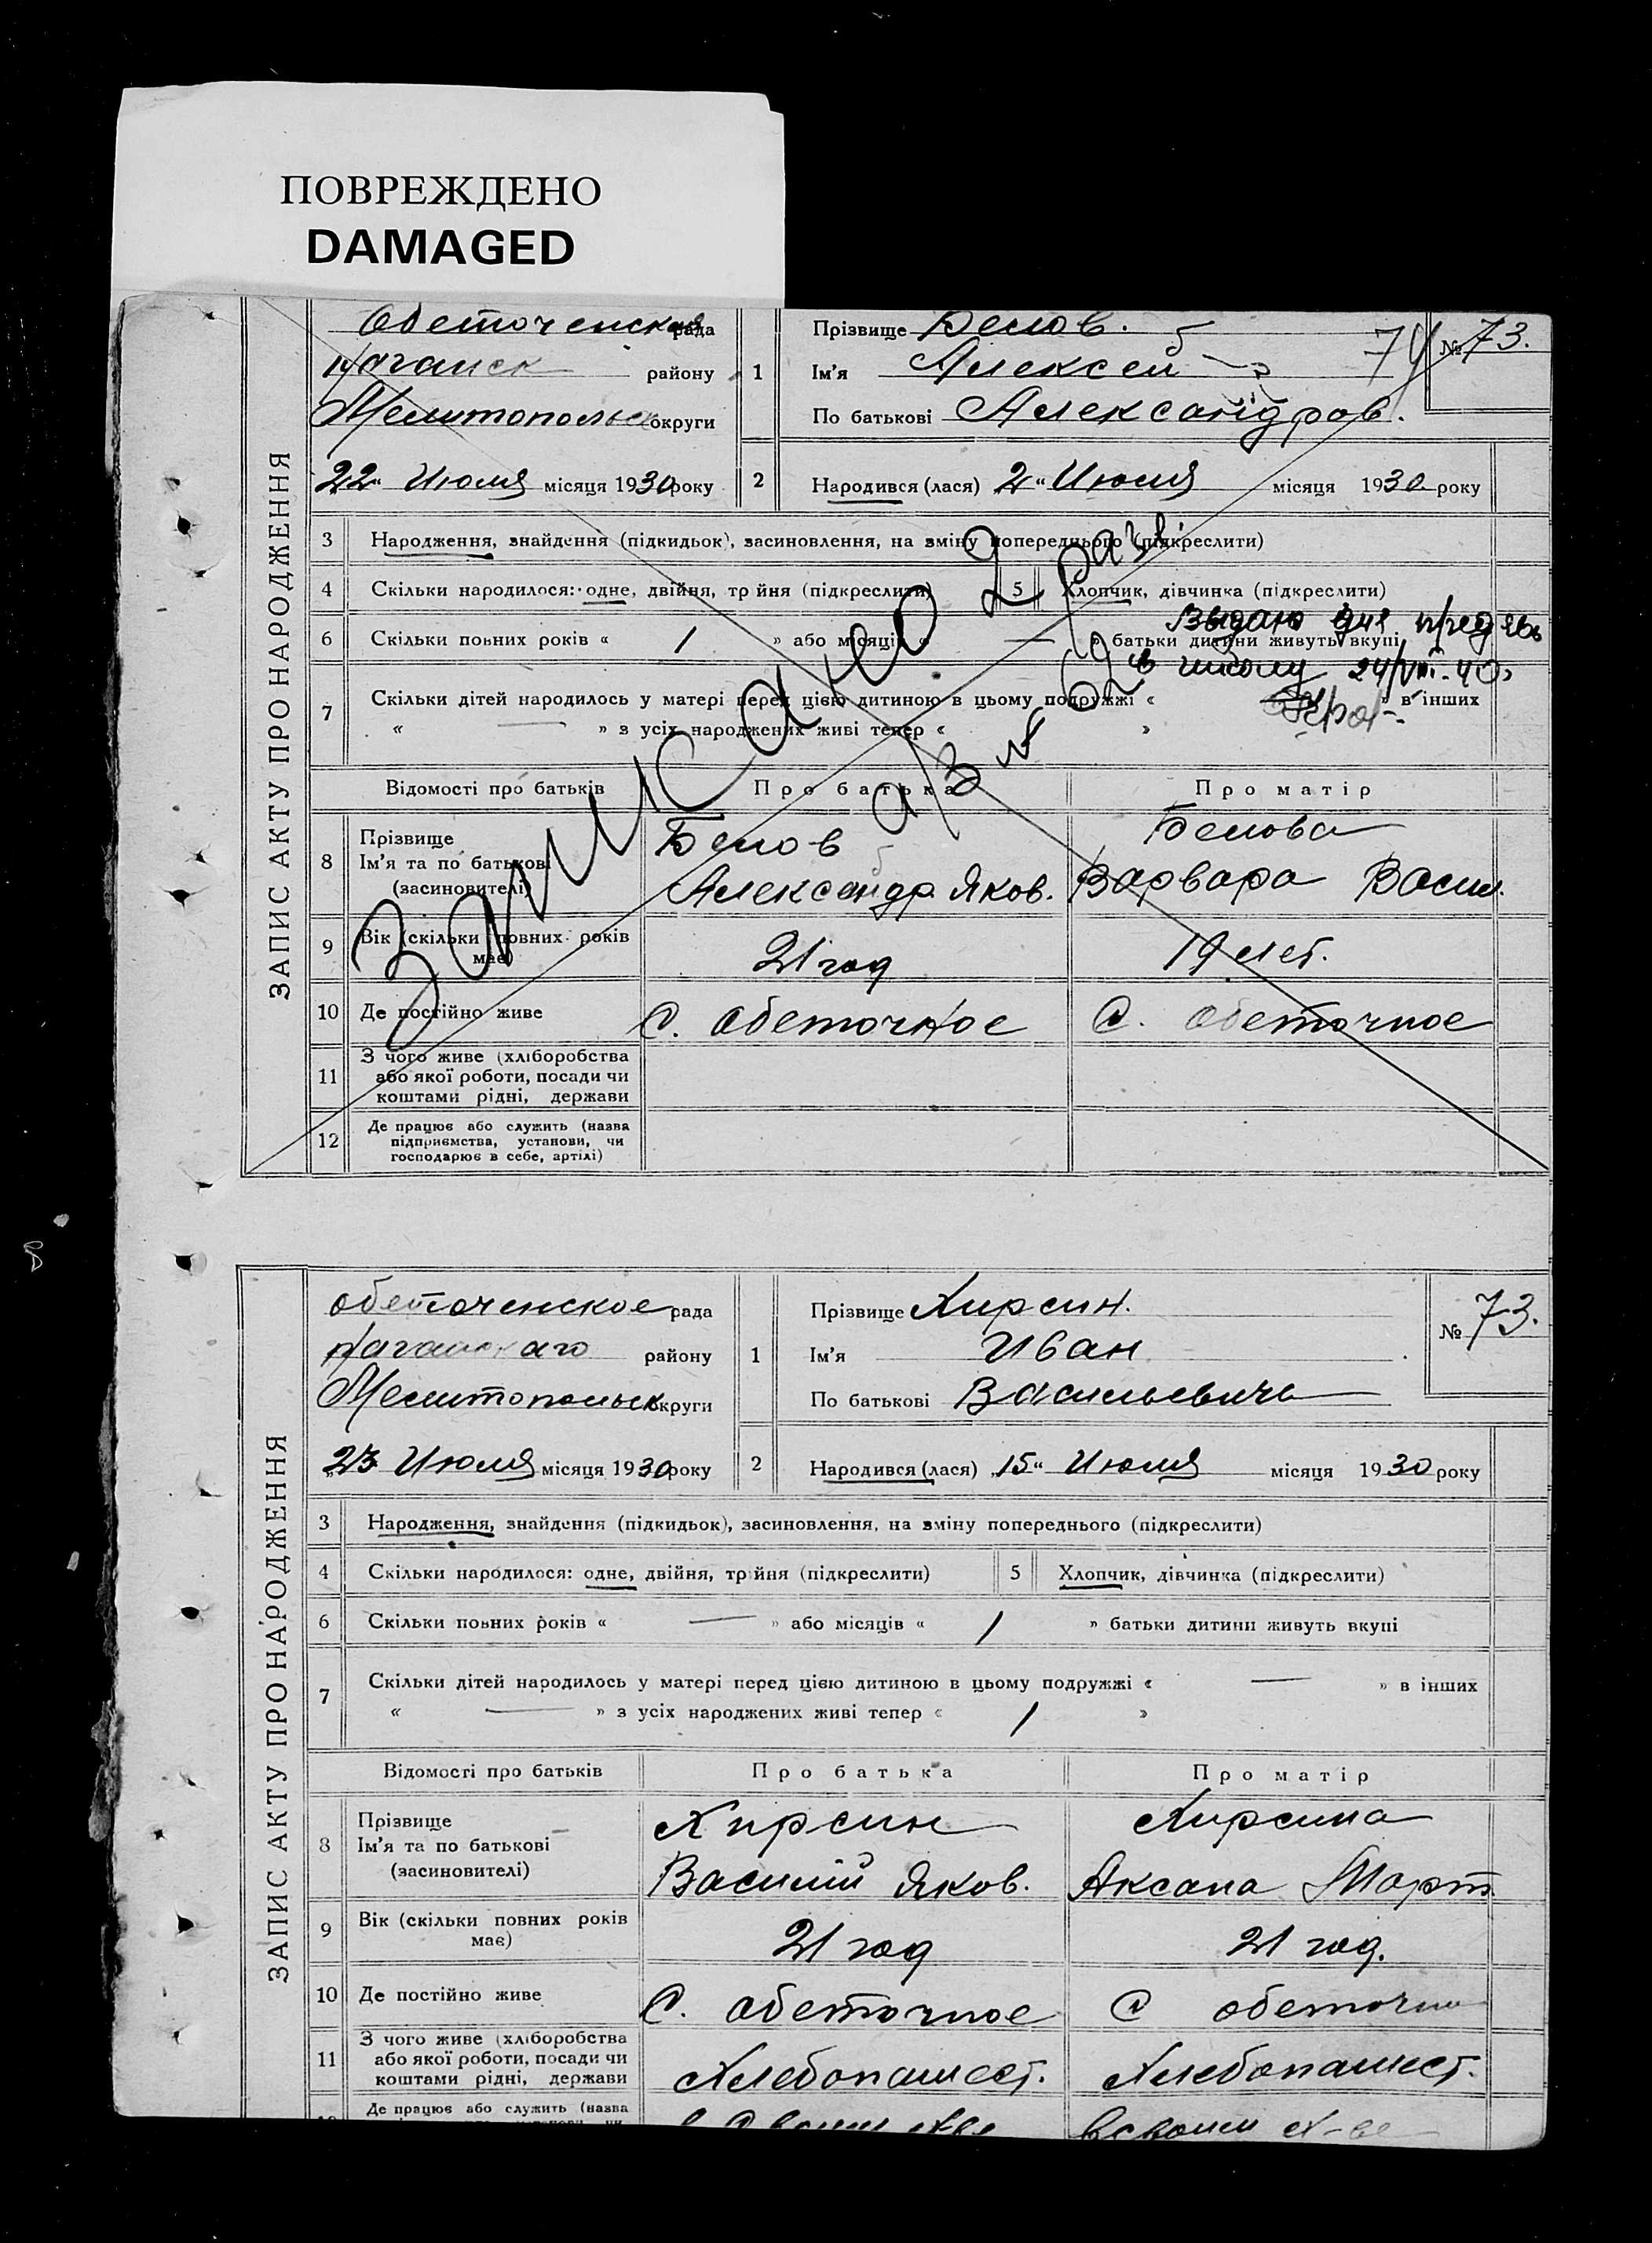 ПОВРЕЖДЕНО
DAMAGED
ЗАПИС АКТУ ПРО НАРОДЖЕННЯ
Обеточенская рада
району
Мелитопольск округи
22 Июля місяця 1930 року
1
Прізвище Белов.
Ім'я Алексей
По батькові Александров.
74
№ 73.
2
Народився (лася) 2 Июля місяця 1930 року
3 Народження, знайдення (підкидьок), засиновлення, на зміну попереднього (підкреслити)
4 Скільки народилося: одне, двійня, трійня (підкреслити) 5 Хлопчик, дівчинка (підкреслити)
6 Скільки повних років « 1 » або місяців « — » батьки дитини живуть вкупі
7 Скільки дітей народилось у матері перед цією дитиною в цьому подружжі « » в інших
« — » з усіх народжених живі тепер « »
Записано 2 раза
а/з № 62
Выдано для пред'явл
в школу 24/VIII-40г
Відомості про батьків Про батька Про матір
8 Прізвище
Ім'я та по батькові
(засиновителі)
Белов
Александр Яков.
Белова
Варвара Васил.
9 Вік (скільки повних років
має)
21 год
19 лет.
10 Де постійно живе С. Обеточное С. Обеточное
11 З чого живе (хліборобства
або якої роботи, посади чи
коштами рідні, держави
12 Де працює або служить (назва
підприємства, установи, чи
господарює в себе, артілі)
ЗАПИС АКТУ ПРО НАРОДЖЕННЯ
Обеточенское рада
району
Мелитопольск округи
„23 Июля місяця 1930 року
1
Прізвище Хирсин.
Ім'я Иван
По батькові Васильевичь
№ 73.
2
Народився (лася) „15“ Июля місяця 1930 року
3 Народження, знайдення (підкидьок), засиновлення, на зміну попереднього (підкреслити)
4 Скільки народилося: одне, двійня, трійня (підкреслити) 5 Хлопчик, дівчинка (підкреслити)
6 Скільки повних років « — » або місяців « 1 » батьки дитини живуть вкупі
7 Скільки дітей народилось у матері перед цією дитиною в цьому подружжі « — » в інших
« — » з усіх народжених живі тепер « 1 »
Відомості про батьків Про батька Про матір
8 Прізвище
Ім'я та по батькові
(засиновителі)
Хирсин
Василий Яков.
Хирсина
Аксана Март
9 Вік (скільки повних років
має)
21 год
21 год.
10 Де постійно живе С. Обеточное С Обеточное
11 З чого живе (хліборобства
або якої роботи, посади чи
коштами рідні, держави
Хлебопашест.
Хлебопашест.
Де працює або служить (назва